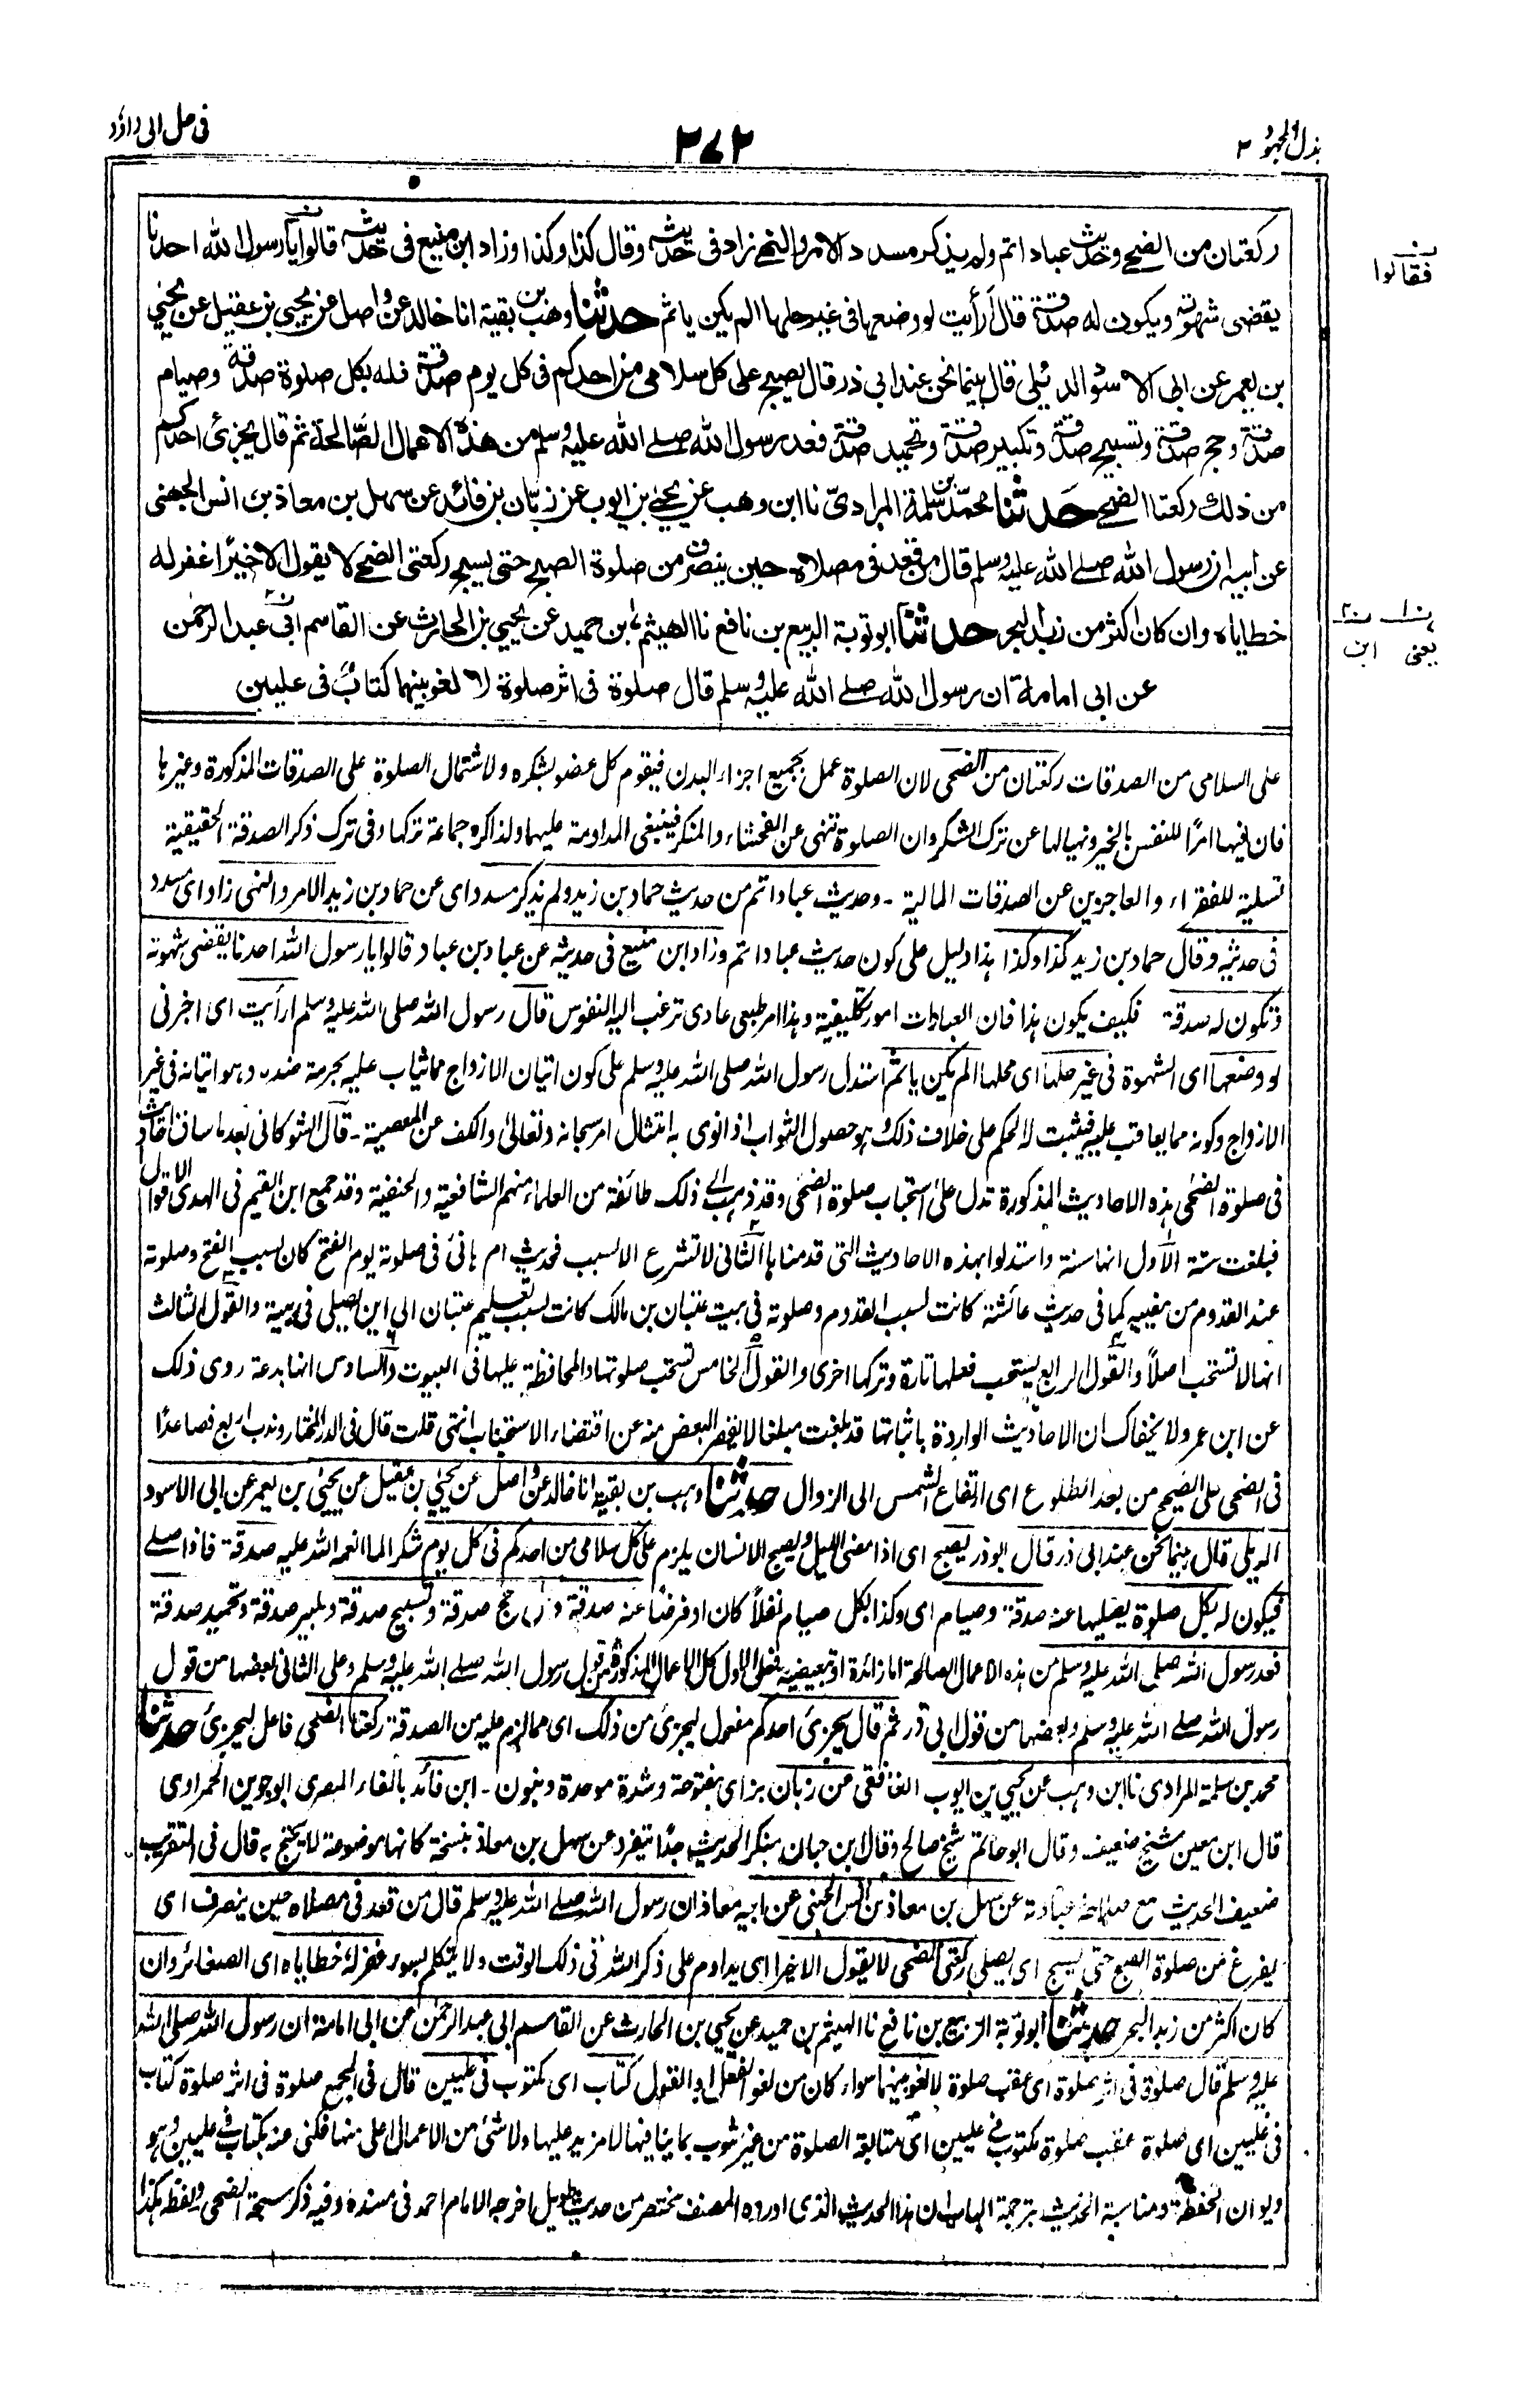 بذل المجهود ٢
٢٧٢
فى حل ابى داؤد
ركعتان من الضحى وحديث عباد اتم ولم يذكر مسدد الامر والنهى زاد فى حديثه وقال كذا وكذا وزاد ابن منيع فى حديثه قالوا يا رسول الله احدنا
فقالوا
يقضى شهوته ويكون له صدقة قال أرأيت لو وضعها فى غير حلها الم يكن ياثم حدثنا وهب بن بقية انا خالد عن واصل عن يحيى بن عقيل عن يحيى
بن يعمر عن ابى الاسود الديلى قال بينما نحن عند ابى ذر قال يصبح على كل سلامى من احدكم فى كل يوم صدقة فله بكل صلوة صدقة وصيام
صدقة وحج صدقة وتسبيح صدقة وتكبير صدقة وتحميد صدقة فعد رسول الله صلى الله عليه وسلم من هذه الاعمال الصالحة ثم قال يجزئ احدكم
من ذلك ركعتا الضحى حدثنا محمد بن سلمة المرادى نا ابن وهب عن يحيى بن ايوب عن زبان بن فائد عن سهل بن معاذ بن انس الجهنى
عن ابيه ان رسول الله صلى الله عليه وسلم قال من قعد فى مصلاه حين ينصرف من صلوة الصبح حتى يسبح ركعتى الضحى لا يقول الا خيرا غفر له
خطاياه وان كان اكثر من زبد البحر حدثنا ابو توبة الربيع بن نافع نا الهيثم بن حميد عن يحيى بن الحارث عن القاسم ابى عبد الرحمن
يعنى ابن
عن ابى امامة ان رسول الله صلى الله عليه وسلم قال صلوة فى اثر صلوة لا لغو بينهما كتاب فى عليين
على السلامى من الصدقات ركعتان من الضحى لان الصلوة عمل بجميع اجزاء البدن فيقوم كل عضو بشكره ولاشتمال الصلوة على الصدقات المذكورة وغيرها
فان فيها امرا للنفس بالخير ونهيا لها عن ترك الشكر وان الصلوة تنهى عن الفحشاء والمنكر فينبغى المداومة عليهما ولذا كره جماعة تركها وفى ترك ذكر الصدقة الحقيقية
تسلية للفقراء والعاجزين عن الصدقات المالية - وحديث عباد اتم من حديث حماد بن زيد ولم يذكر مسدد اى عن حماد بن زيد الامر والنهى زاد اى مسدد
فى حديثه وقال حماد بن زيد كذا وكذا هذا دليل على كون حديث عباد اتم وزاد ابن منيع فى حديثه عن عباد بن عباد قالوا يا رسول الله احدنا يقضى شهوته
وتكون له صدقة فكيف يكون هذا فان العبادات امور تكليفية وهذا امر طبعى عادى ترغب اليه النفوس قال رسول الله صلى الله عليه وسلم ارأيت اى اخبرنى
لو وضعها اى الشهوة فى غير حلها اى محلها الم يكن ياثم استدل رسول الله صلى الله عليه وسلم على كون اتيان الازواج مما يثاب عليه بحرمة ضده وهو اتيانه فى غير
الازواج وكونه مما يعاقب عليه فيثبت له الحكم على خلاف ذلك وهو حصول الثواب اذا نوى به امتثال امر سبحانه وتعالى والكف عن المعصية - قال الشوكانى بعد ما ساق احاديث
فى صلوة الضحى هذه الاحاديث المذكورة تدل على استحباب صلوة الضحى وقد ذهب الى ذلك طائفة من العلماء منهم الشافعية والحنفية وقد جمع ابن القيم فى الهدى الاقوال
فبلغت ستة الاول انها سنة واستدلوا بهذه الاحاديث التى قدمناها الثانى لا تشرع الا لسبب فحديث ام هانئ فى صلوته يوم الفتح كان لسبب الفتح وصلوته
عند القدوم من مغيبه كما فى حديث عائشة كانت لسبب القدوم وصلوته فى بيت عتبان بن مالك كانت لسبب تعليم عتبان الى اين يصلى فى بيته والقول الثالث
انها لا تستحب اصلا والقول الرابع يستحب فعلها تارة وتركها اخرى والقول الخامس تستحب صلوتها والمحافظة عليها فى البيوت والسادس انها بدعة روى ذلك
عن ابن عمر ولا يخفاك ان الاحاديث الواردة باثباتها قد بلغت مبلغا لا يقصر البعض منه عن اقتضاء الاستحباب انتهى قلت قال فى الدر المختار وندب اربع فصاعدا
فى الضحى على الصحيح من بعد الطلوع اى ارتفاع الشمس الى الزوال حدثنا وهب بن بقية انا خالد عن واصل عن يحيى بن عقيل عن يحيى بن يعمر عن ابى الاسود
الديلى قال بينما نحن عند ابى ذر قال ابو ذر يصبح اى اذا مضى الليل ويصبح الانسان يلزم على كل سلامى من احدكم فى كل يوم شكرا لما انعم الله عليه صدقة فاذا صلى
فيكون له بكل صلوة يصليها عنه صدقة وصيام اى وكذا بكل صيام نفلا كان او فرضا عنه صدقة و حج صدقة وتسبيح صدقة وتكبير صدقة وتحميد صدقة
فعد رسول الله صلى الله عليه وسلم من هذه الاعمال الصالحة اما زائدة او تبعيضية فعلى الاول كل الاعمال المذكورة من قول رسول الله صلى الله عليه وسلم وعلى الثانى بعضها من قول
رسول الله صلى الله عليه وسلم وبعضها من قول ابى ذر ثم قال يجزئ احدكم مفعول ليجزئ من ذلك اى مما لزم عليه من الصدقة ركعتا الضحى فاعل ليجزئ حدثنا
محمد بن سلمة المرادى نا ابن وهب عن يحيى بن ايوب الغافقى عن زبان بزاى مفتوحة وشدة موحدة وبنون - ابن فائد بالفاء المصرى ابو جوين الحمراوى
قال ابن معين شيخ ضعيف وقال ابو حاتم شيخ صالح وقال ابن حبان منكر الحديث جدا يتفرد عن سهل بن معاذ بنسخة كانها موضوعة لا يحتج به قال فى التقريب
ضعيف الحديث مع صلاحه وعبادته عن سهل بن معاذ بن انس الجهنى عن ابيه معاذ ان رسول الله صلى الله عليه وسلم قال من قعد فى مصلاه حين ينصرف اى
يفرغ من صلوة الصبح حتى يسبح اى يصلى ركعتى الضحى لا يقول الا خيرا اى يداوم على ذكر الله فى ذلك الوقت ولا يتكلم بسوء غفر له خطاياه اى الصغائر وان
كان اكثر من زبد البحر حدثنا ابو توبة الربيع بن نافع نا الهيثم بن حميد عن يحيى بن الحارث عن القاسم ابى عبد الرحمن عن ابى امامة ان رسول الله صلى الله
عليه وسلم قال صلوة فى اثر صلوة اى عقب صلوة لا لغو بينهما سواء كان من لغو الفعل او القول كتاب اى مكتوب فى عليين قال فى المجمع صلوة فى اثر صلوة كتاب
فى عليين اى صلوة عقب صلوة مكتوب فى عليين اى متابعة الصلوة من غير شوب بما ينافيها لا مزيد عليها ولا شئ من الاعمال اعلى منها فكنى عنه بكتاب فى عليين وهو
ديوان الحفظة ومناسبة الحديث بترجمة الباب ان هذا الحديث الذى اورده المصنف مختصر من حديث طويل اخرجه الامام احمد فى مسنده وفيه ذكر سبحة الضحى ولفظه هكذا